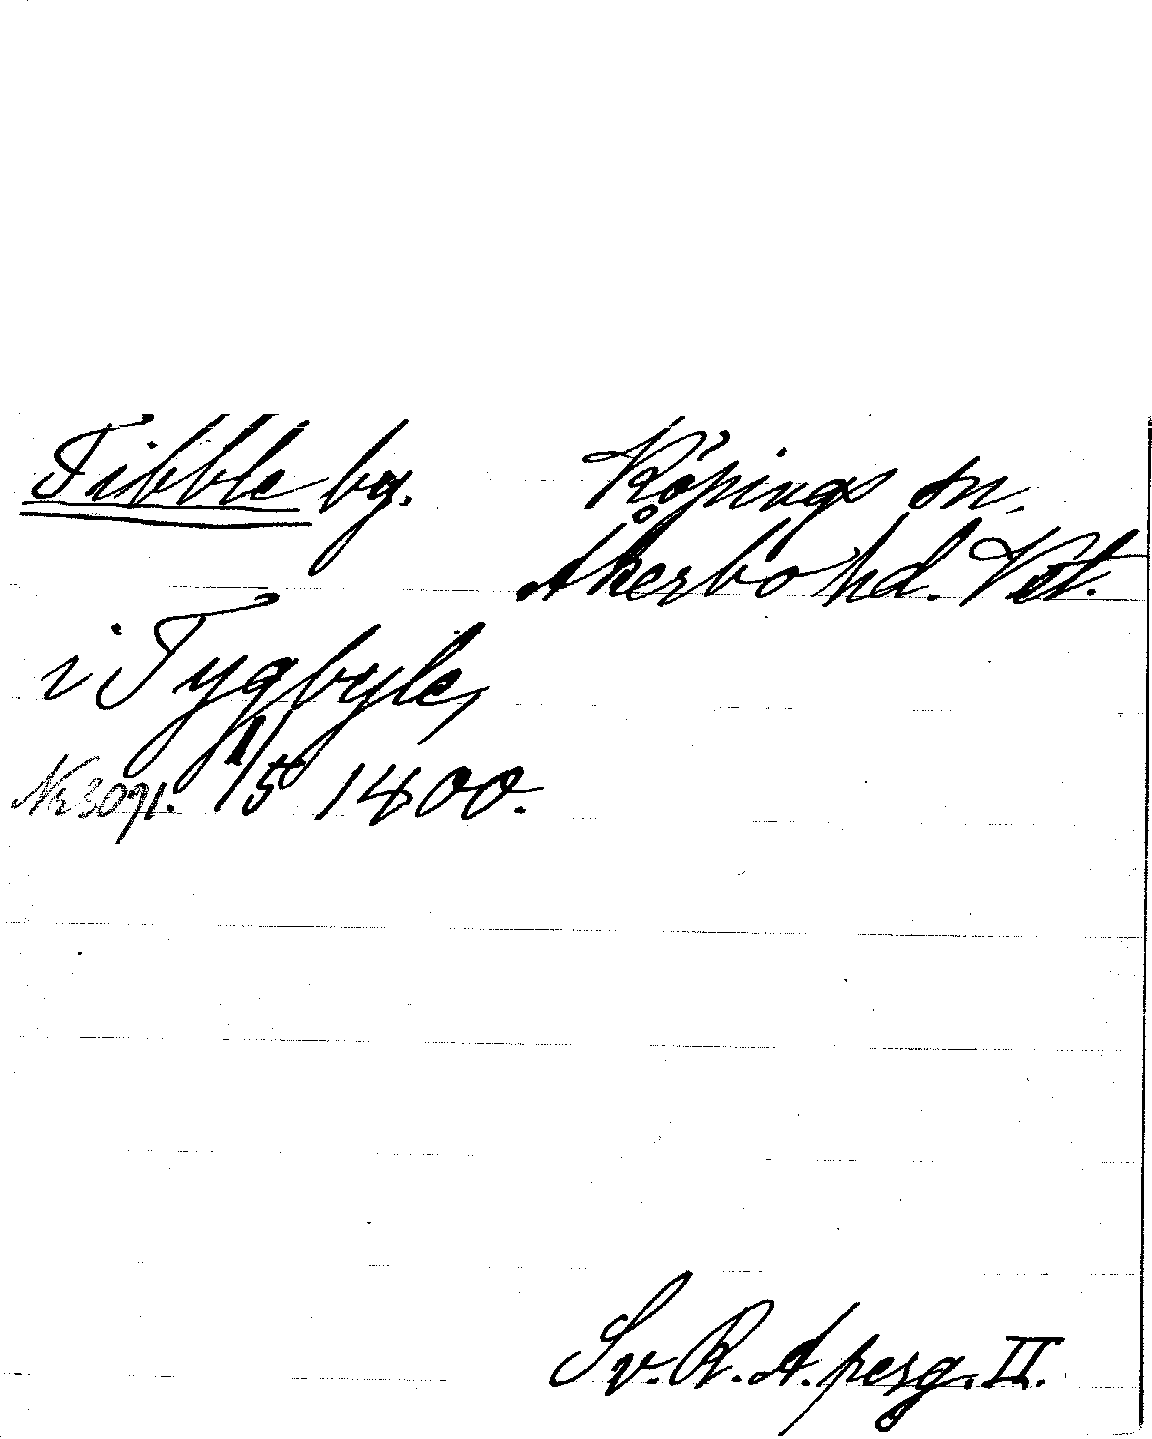 Tibble by. Köpings sn,
Åkerbo hd. Vstl.
i Tygbyle,
Nr 3091. 1/5 1400.
Sv. R. A. perg. II.